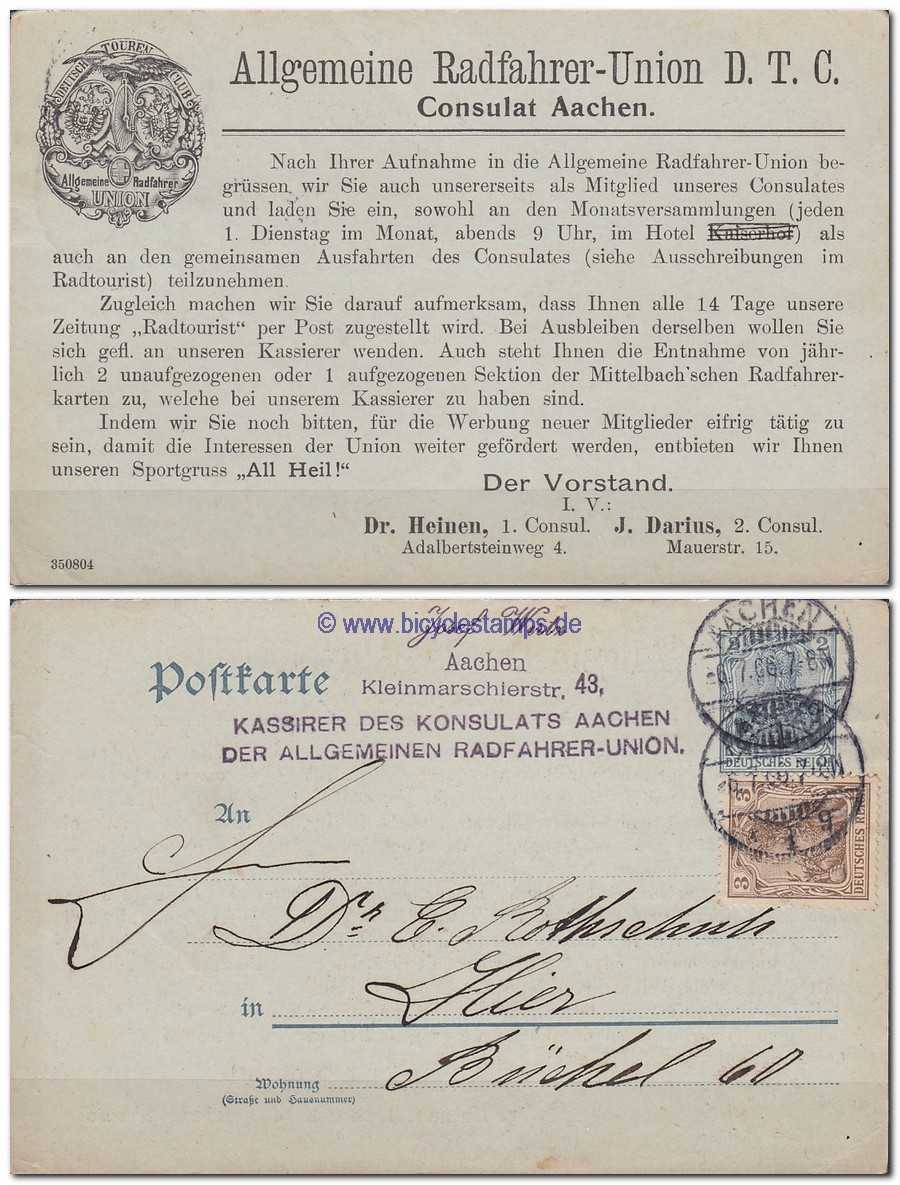 DEUTSCH TOUREN CLUB
Allgemeine Radfahrer
UNION
Allgemeine Radfahrer-Union D. T. C.
Consulat Aachen.
Nach Ihrer Aufnahme in die Allgemeine Radfahrer-Union be-
grüssen wir Sie auch unsererseits als Mitglied unseres Consulates
und laden Sie ein, sowohl an den Monatsversammlungen (jeden
1. Dienstag im Monat, abends 9 Uhr, im Hotel Kaiserhof) als
auch an den gemeinsamen Ausfahrten des Consulates (siehe Ausschreibungen im
Radtourist) teilzunehmen.
Zugleich machen wir Sie darauf aufmerksam, dass Ihnen alle 14 Tage unsere
Zeitung „Radtourist“ per Post zugestellt wird. Bei Ausbleiben derselben wollen Sie
sich gefl. an unseren Kassierer wenden. Auch steht Ihnen die Entnahme von jähr-
lich 2 unaufgezogenen oder 1 aufgezogenen Sektion der Mittelbach'schen Radfahrer-
karten zu, welche bei unserem Kassierer zu haben sind.
Indem wir Sie noch bitten, für die Werbung neuer Mitglieder eifrig tätig zu
sein, damit die Interessen der Union weiter gefördert werden, entbieten wir Ihnen
unseren Sportgruss „All Heil!“
Der Vorstand.
I. V.:
Dr. Heinen, 1. Consul. J. Darius, 2. Consul.
Adalbertsteinweg 4. Mauerstr. 15.
350804
© www.bicyclestamps.de
Josef
Aachen
Kleinmarschierstr. 43,
KASSIRER DES KONSULATS AACHEN
DER ALLGEMEINEN RADFAHRER-UNION.
Postkarte
AACHEN
2 2
DEUTSCHES REICH
3 3
DEUTSCHES REICH
An
Dr. C. Rothschuh
in Hier
Wohnung Büchel 60
(Straße und Hausnummer)